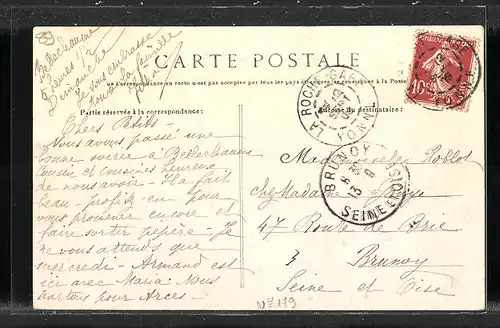 89
CARTE POSTALE
La Correspondance au recto n'est pas acceptée par tous les pays étrangers.
Partie réservée à la correspondance:
Adresse du destinataire:
Bellechaume
5 heures 1/2
Dimanche
Je vous embrasse
toute la famille
Chers Petits -
Nous avons passé une
bonne soirée à Bellechaume
Cousin et cousines heureux
de nous avoir - Il a fait
beau - profitez-en pour
vous promener encore et
faire sortir pépère - Je
ne vous attends que
mercredi - Armand est
ici avec Maria. Nous
partons pour Arces -
Mademoiselle Roblot
chez Madame
47 Route de Brie
à Brunoy
Seine et Oise
LA ROCHE
YONNE
BRUNOY
SEINE ET OISE
10c
No 119